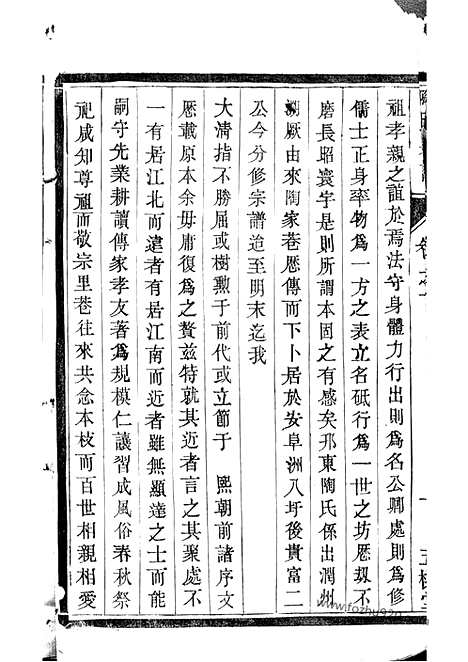 祖孝親之誼於焉法守身體力行出則爲名公卿處則爲修
儒士正身率物爲一方之表立名砥行爲一世之坊歷刼不
磨長昭寰宇是則所謂本固之有感矣邗東陶氏係出潤州
溯厥由來陶家巷歷傳而下卜居於安阜洲八圩後貴富二
公今分修宗譜迨至明末迄我
大清指不勝屈或樹勲于前代或立節于 熙朝前諸序文
歷載原本余毋庸復爲之贅茲特就其近者言之其聚處不
一有居江北而遠者有居江南而近者雖無顯達之士而能
嗣守先業耕讀傳家孝友著爲規模仁讓習成風俗春秋祭
祀咸知尊祖而敬宗里巷往來共念本枝而百世相親相愛
www.fozhu920.com